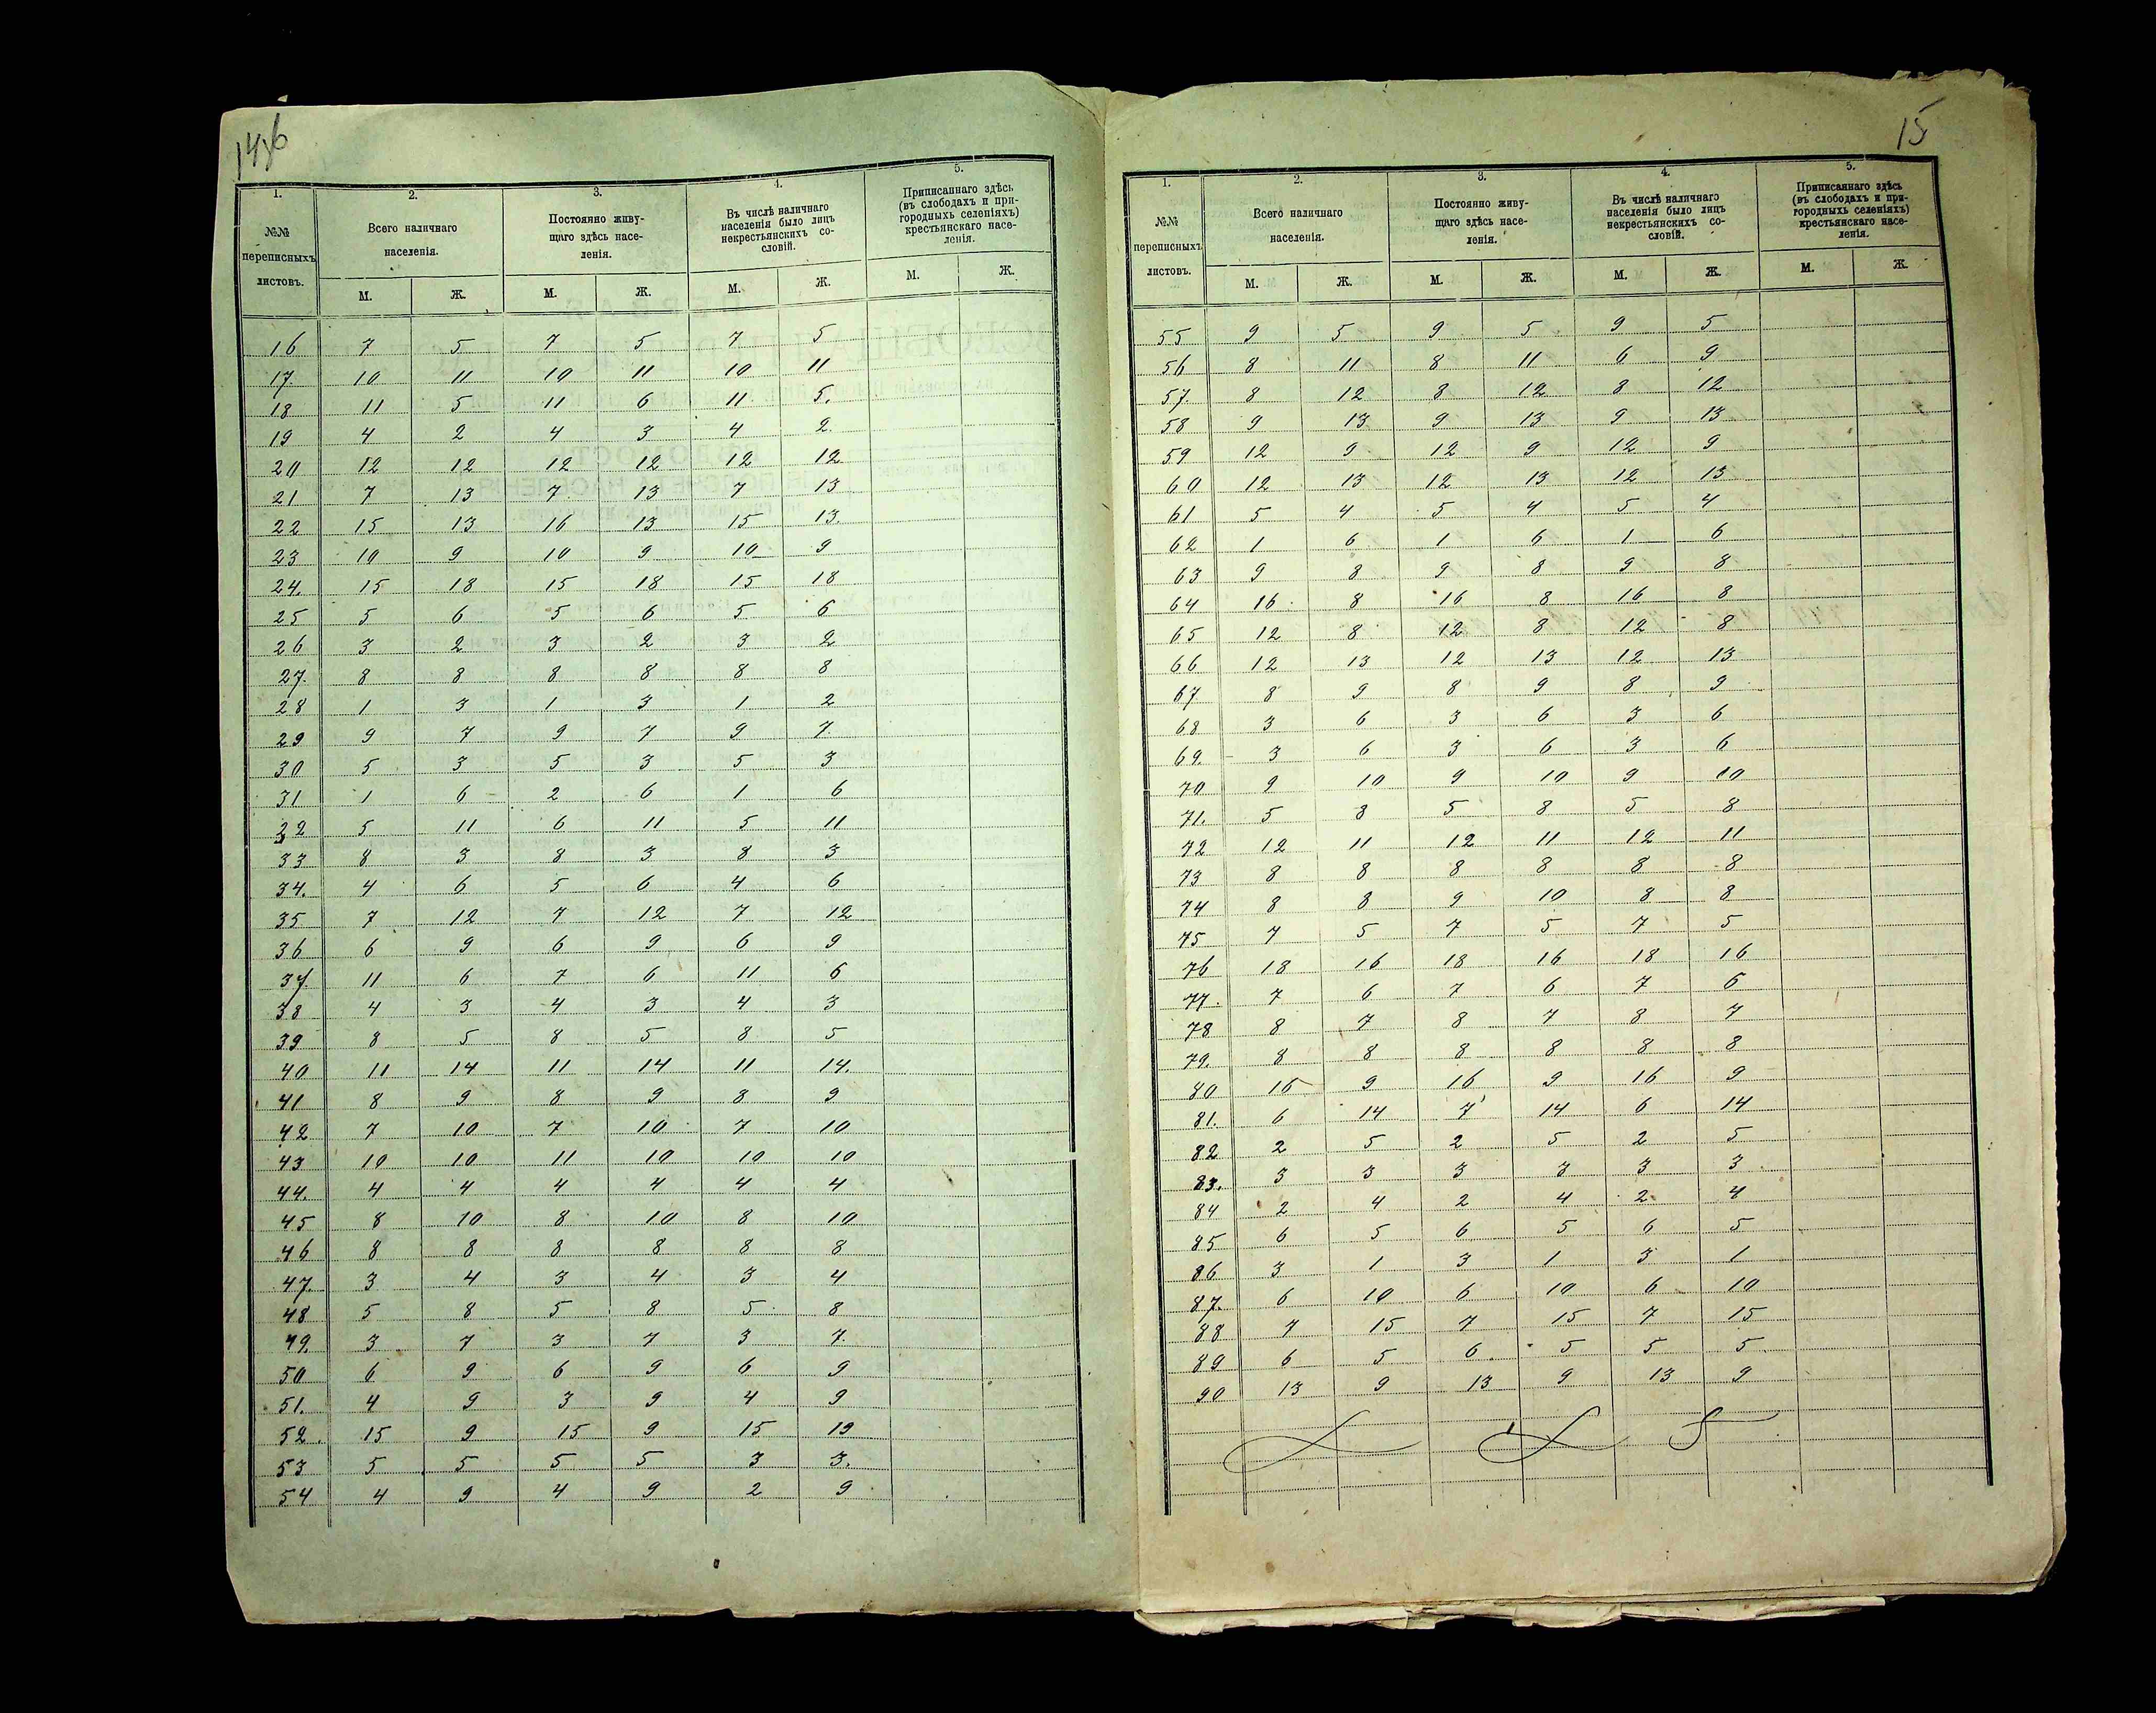 14об
1. 2. 3. 4. 5.
№№ переписныхъ листовъ. Всего наличнаго населенія. Постоянно живущаго здѣсь населенія. Въ числѣ наличнаго населенія было лицъ некрестьянскихъ сословій. Приписаннаго здѣсь (въ слободахъ и пригородныхъ селеніяхъ) крестьянскаго населенія.
М. Ж. М. Ж. М. Ж. М. Ж.
16 7 5 7 5 7 5
17. 10 11 10 11 10 11
18 11 5 11 6 11 5.
19 4 2 4 3 4 2.
20 12 12 12 12 12 12
21 7 13 7 13 7 13
22 15 13 16 13 15 13.
23 10 9 10 9 10 9
24. 15 18 15 18 15 18
25 5 6 5 6 5 6
26 3 2 3 2 3 2
27. 8 8 8 8 8 8
28 1 3 1 3 1 2
29 9 7 9 7 9 7.
30 5 3 5 3 5 3
31 1 6 2 6 1 6
32 5 11 6 11 5 11
33 8 3 8 3 8 3
34. 4 6 5 6 4 6
35 7 12 7 12 7 12
36 6 9 6 9 6 9
37. 11 6 7 6 11 6
38 4 3 4 3 4 3
39 8 5 8 5 8 5
40 11 14 11 14 11 14.
41 8 9 8 9 8 9
42 7 10 7 10 7 10
43 10 10 11 10 10 10
44. 4 4 4 4 4 4
45 8 10 8 10 8 10
46 8 8 8 8 8 8
47. 3 4 3 4 3 4
48 5 8 5 8 5 8
49. 3 7 3 7 3 7.
50 6 9 6 9 6 9
51. 4 9 3 9 4 9
52. 15 9 15 9 15 19
53 5 5 5 5 3 3.
54 4 9 4 9 2 9
15
1. 2. 3. 4. 5.
№№ переписныхъ листовъ. Всего наличнаго населенія. Постоянно живущаго здѣсь населенія. Въ числѣ наличнаго населенія было лицъ некрестьянскихъ сословій. Приписаннаго здѣсь (въ слободахъ и пригородныхъ селеніяхъ) крестьянскаго населенія.
М. Ж. М. Ж. М. Ж. М. Ж.
55 9 5 9 5 9 5
56 8 11 8 11 6 9
57. 8 12 8 12 8 12
58 9 13 9 13 9 13
59 12 9 12 9 12 9
60 12 13 12 13 12 13
61 5 4 5 4 5 4
62 1 6 1 6 1 6
63 9 8 9 8 9 8
64 16 8 16 8 16 8
65 12 8 12 8 12 8
66 12 13 12 13 12 13
67 8 9 8 9 8 9
68 3 6 3 6 3 6
69. 3 6 3 6 3 6
70 9 10 9 10 9 10
71. 5 8 5 8 5 8
72 12 11 12 11 12 11
73 8 8 8 8 8 8
74 8 8 9 10 8 8
75 7 5 7 5 7 5
76 18 16 18 16 18 16
77. 7 6 7 6 7 6
78 8 7 8 7 8 7
79. 8 8 8 8 8 8
80 16 9 16 9 16 9
81. 6 14 7 14 6 14
82 2 5 2 5 2 5
83. 3 3 3 3 3 3
84 2 4 2 4 2 4
85 6 5 6 5 6 5
86 3 1 3 1 3 1
87. 6 10 6 10 6 10
88 7 15 7 15 7 15
89 6 5 6. 5 5 5.
90 13 9 13 9 13 9